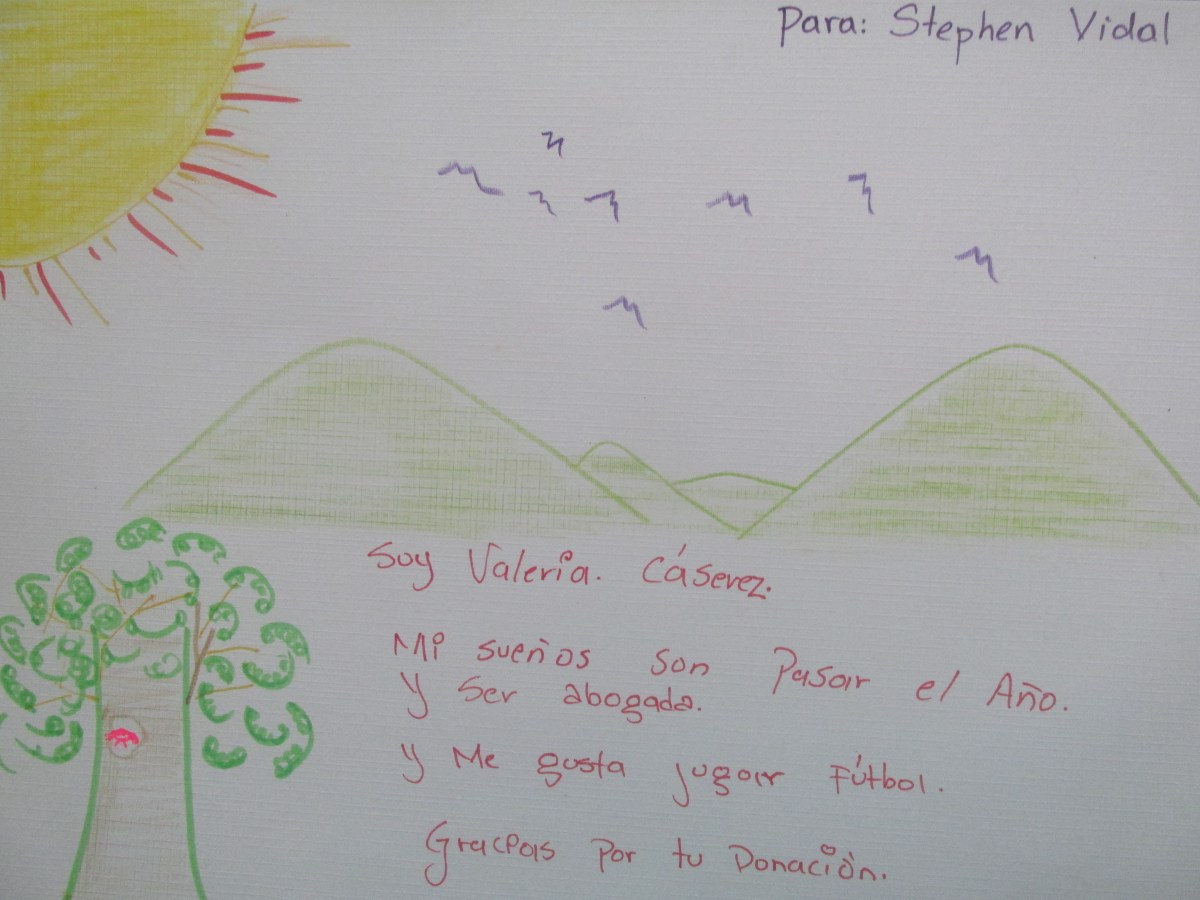 Para: Stephen Vidal
Soy Valeria. Cáserez.
Mi sueños son Pasar el Año.
Y Ser abogada.
Y Me gusta jugar Fútbol.
Gracias por tu Donación.